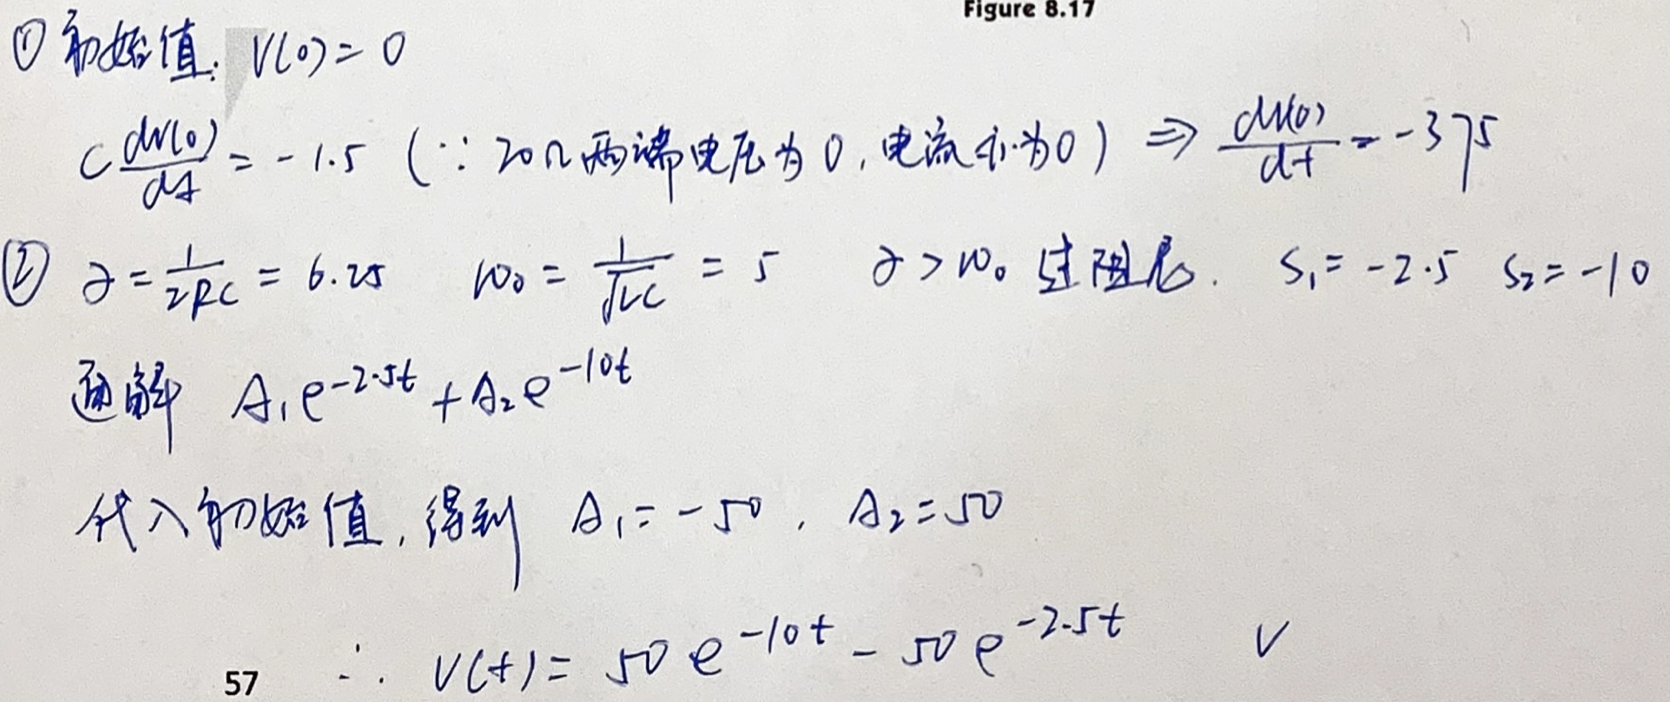 Figure 8.17
① 初始值: V(0) = 0
C dv(0)/dt = -1.5 (∵ 20Ω两端电压为0, 电流亦为0) ⇒ dv(0)/dt = -375
② α = 1/2RC = 6.25 ω₀ = 1/√LC = 5 α > ω₀ 过阻尼. S₁ = -2.5 S₂ = -10
通解 A₁e^-2.5t + A₂e^-10t
代入初始值, 得到 A₁ = -50, A₂ = 50
57 ∴ V(t) = 50e^-10t - 50e^-2.5t V